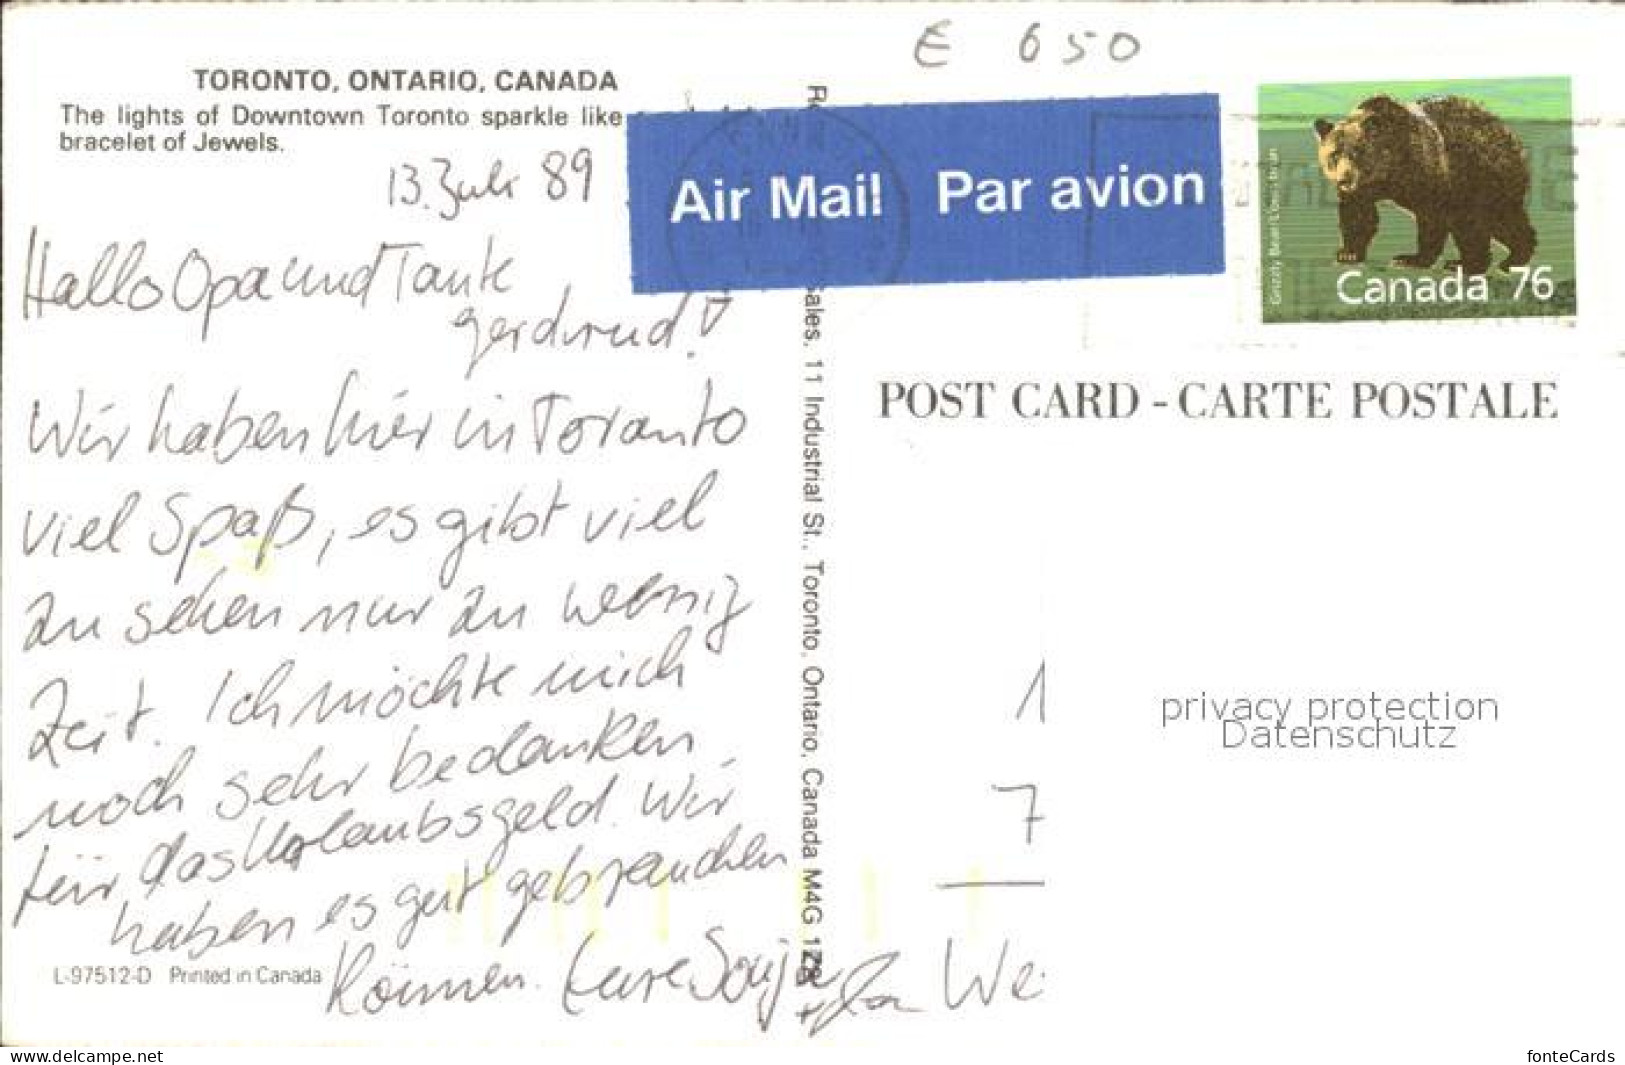 E 650
TORONTO, ONTARIO, CANADA
The lights of Downtown Toronto sparkle like
bracelet of Jewels.
13. Juli 89
Air Mail Par avion
Grizzly Bear/L'ours brun
Canada 76
Hallo Opa und Tante
Gerdrud!
Wir haben hier in Toranto
viel Spaß, es gibt viel
zu sehen nur zu wenig
Zeit. Ich möchte mich
noch sehr bedanken
für das Urlaubsgeld. Wir
haben es gut gebrauchen
können. Eure
L-97512-D Printed in Canada
Sales, 11 Industrial St., Toronto, Ontario, Canada M4G 1Z9
POST CARD - CARTE POSTALE
1
7
We
privacy protection
Datenschutz
www.delcampe.net
fonteCards